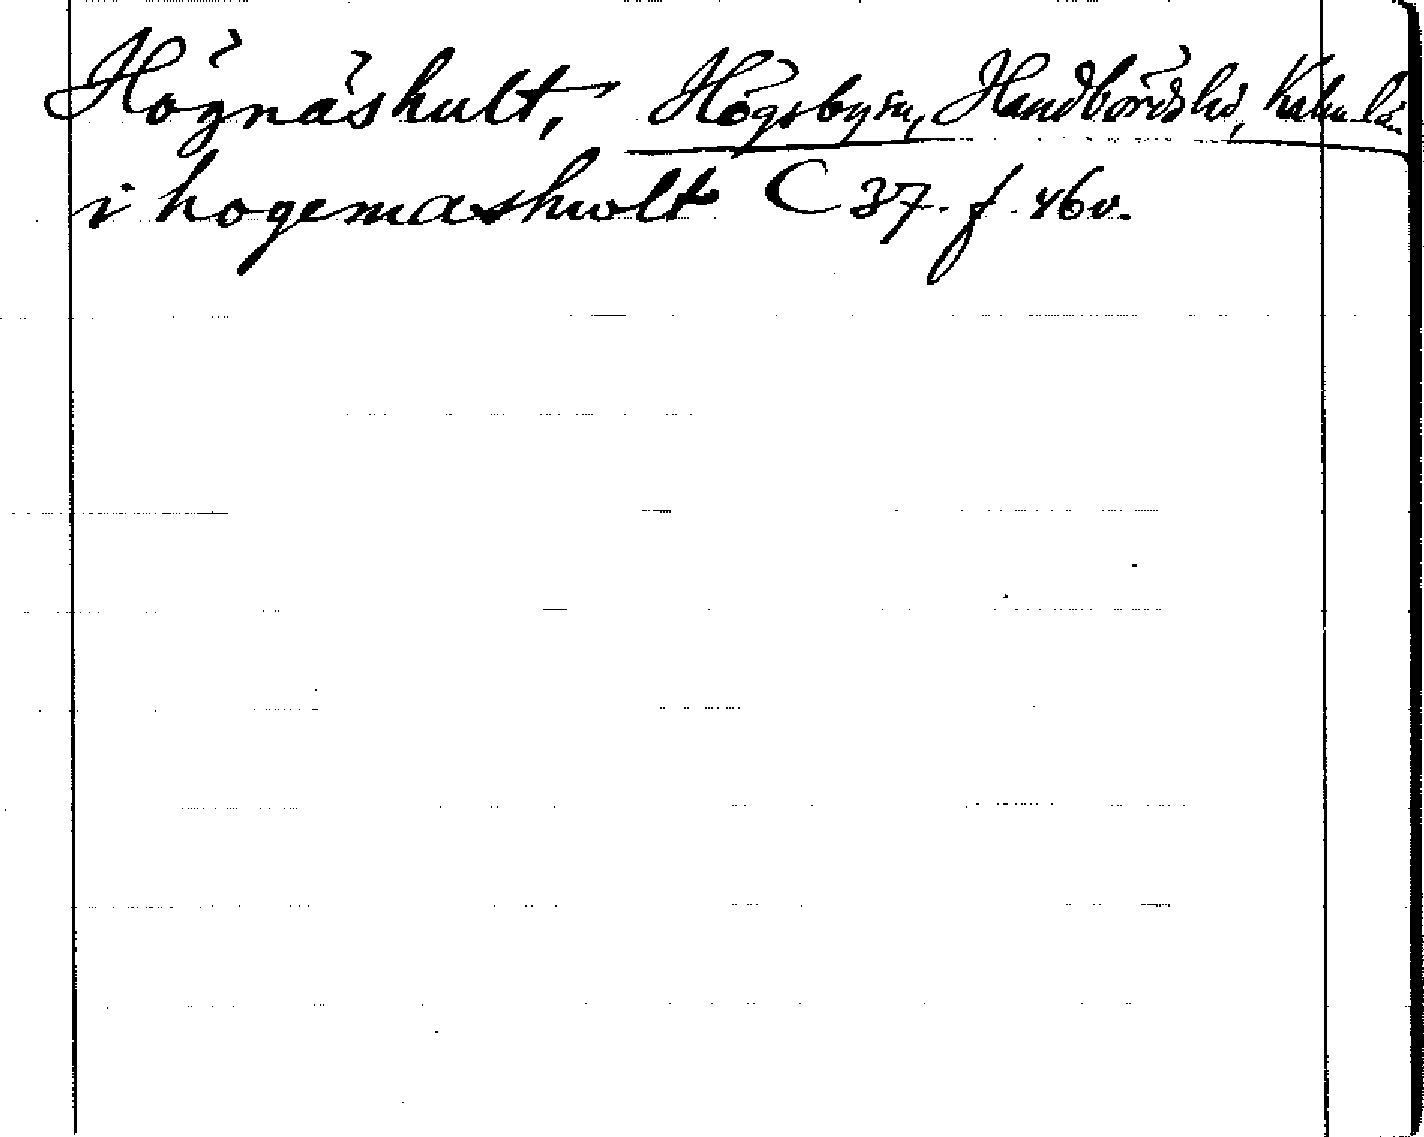 Högnäshult, Högsby sn, Handbörds hd, Kalm. län.
i hogemashwlt C 37. f. 46v.